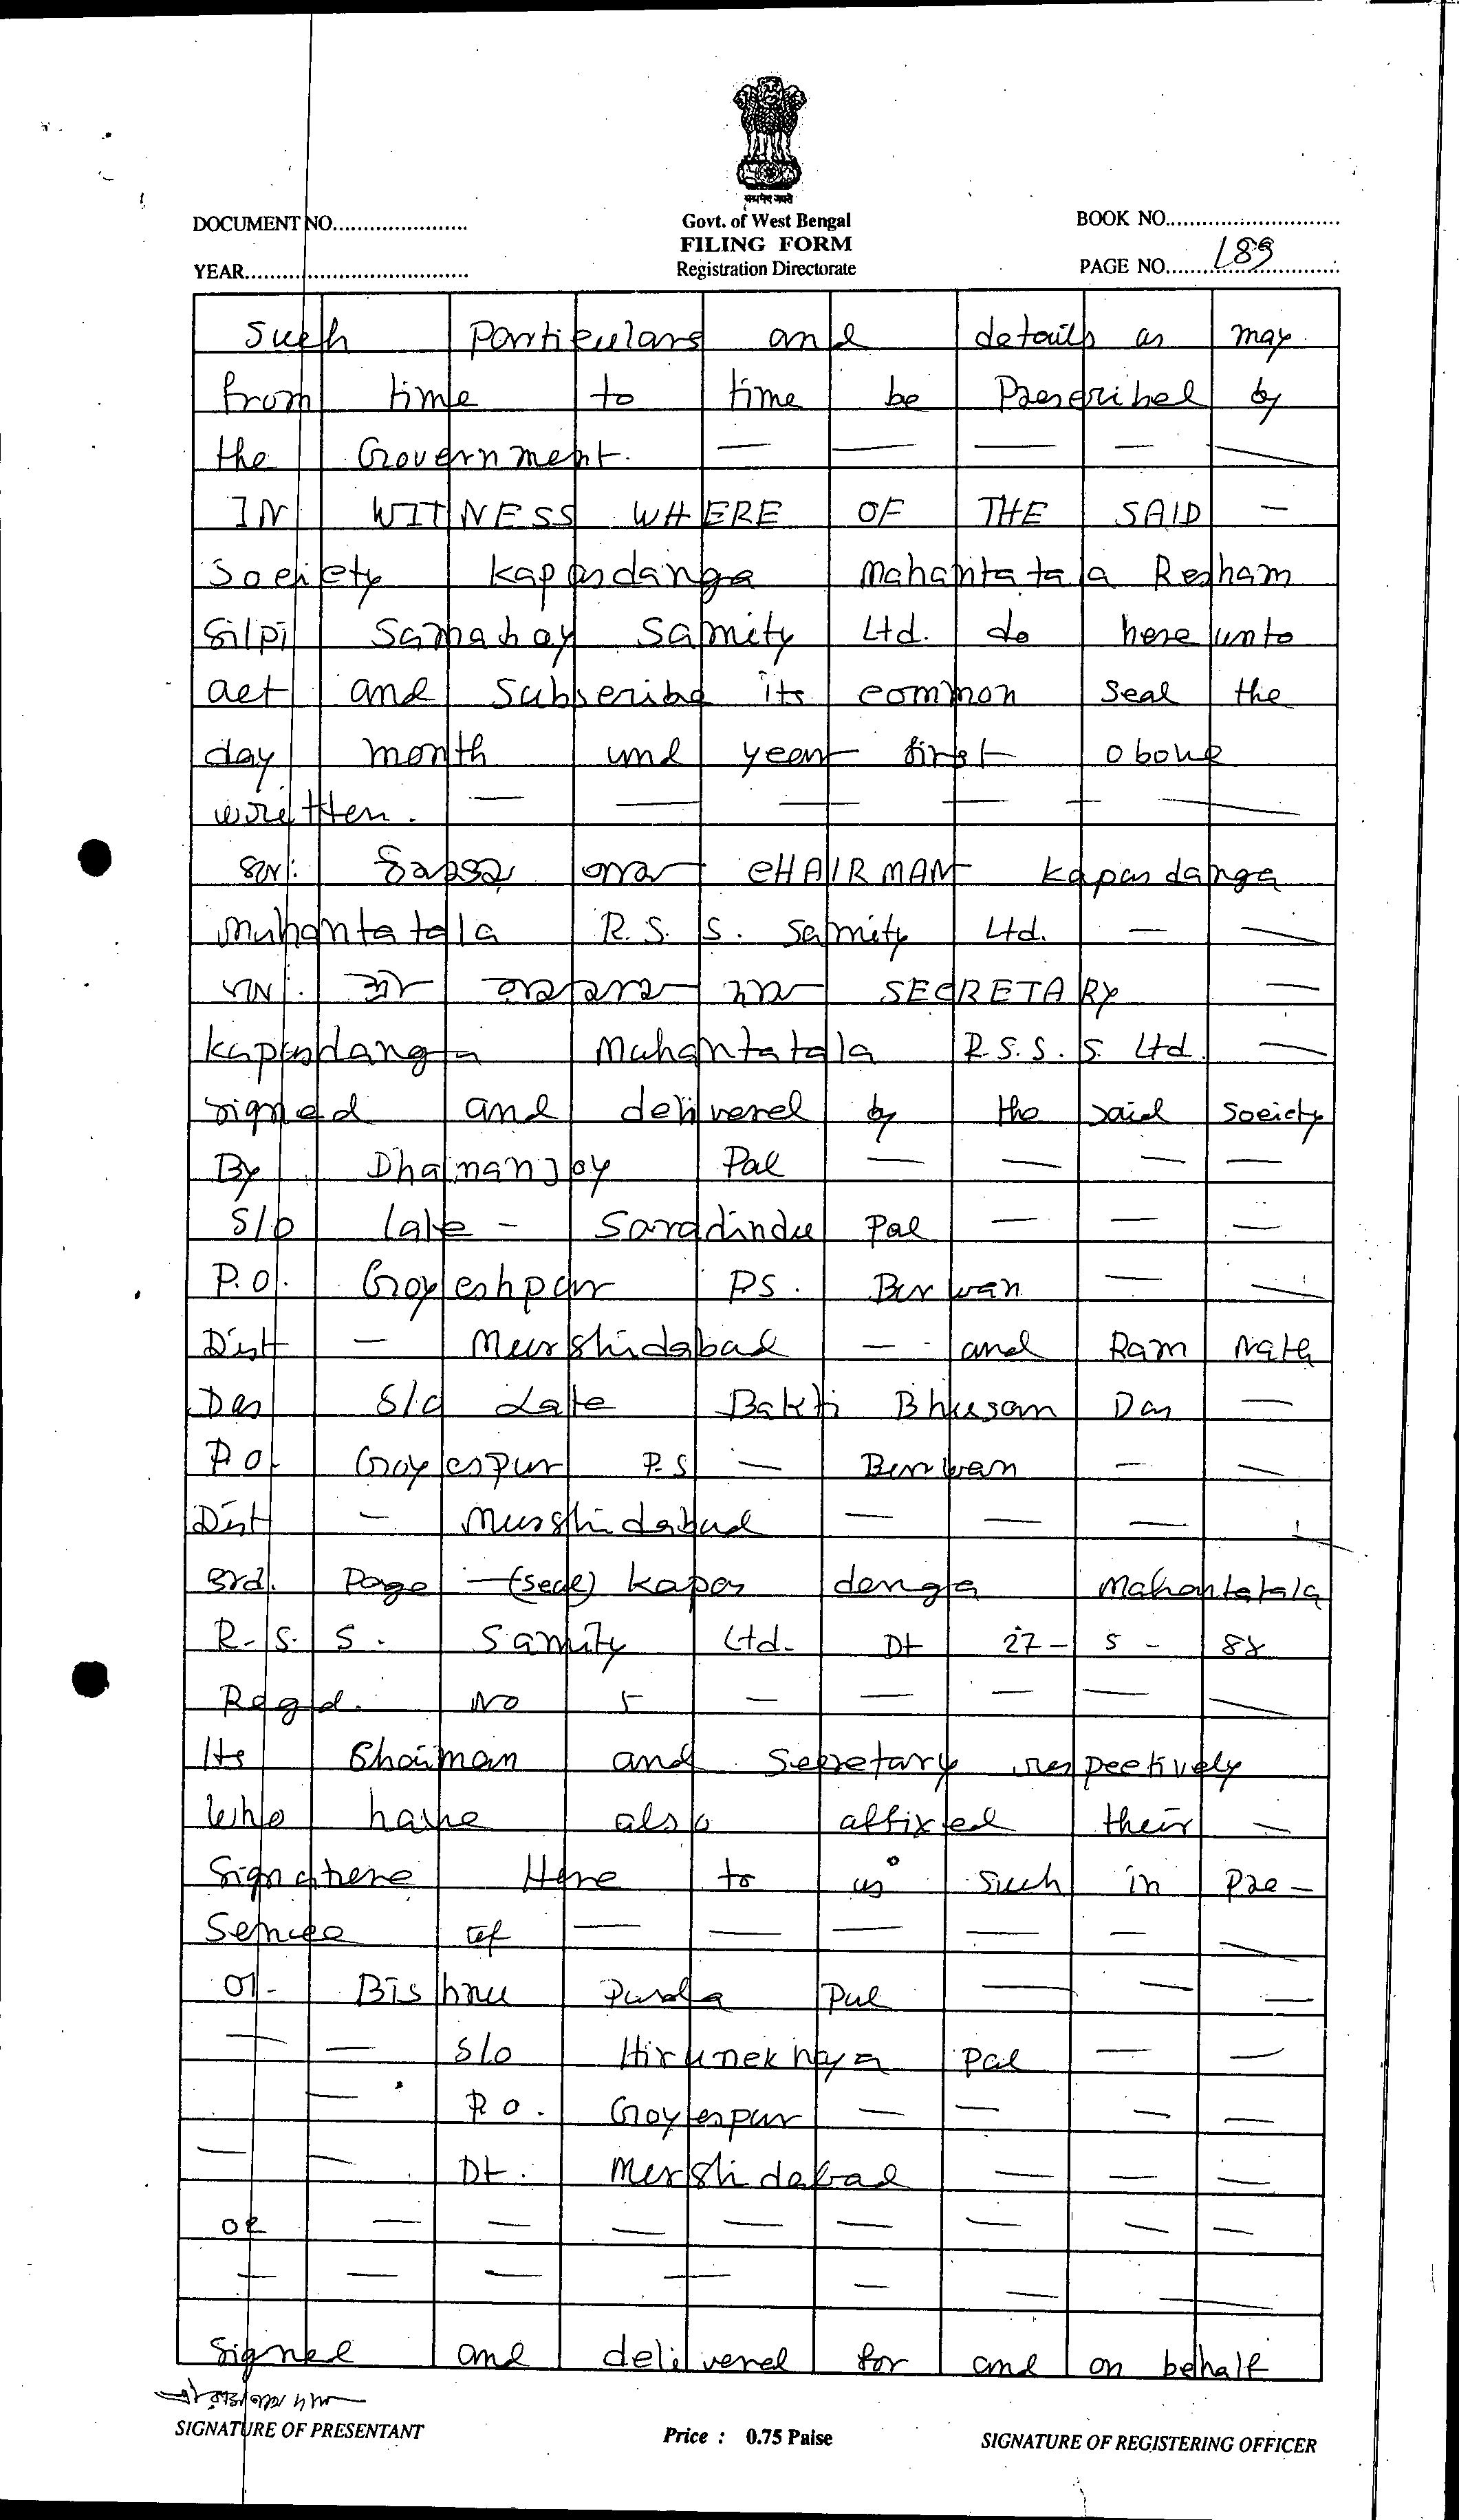 सत्यमेव जयते
DOCUMENT NO...................... Govt. of West Bengal BOOK NO............................
FILING FORM
YEAR.................................... Registration Directorate PAGE NO....... 189 ............
Such Particulars and details as may
from time to time be Prescribed by
the Government. — — — — —
IN WITNESS WHERE OF THE SAID —
Society Kapasdanga Mahantatala Resham
Silpi Samabay Samity Ltd. do here unto
act and Subscribe its common Seal the
day month and year first above
written. — — — — — —
CHAIRMAN Kapasdanga
Mahantatala R.S.S. Samity Ltd. — —
SECRETARY —
Kapasdanga Mahantatala R.S.S.S. Ltd. —
signed and delivered by the said Society
By Dhamanjoy Pal — — — —
S/o late - Saradindu Pal — — —
P.O. Goyeshpur PS. Burwan — —
Dist — Murshidabad — and Ram Nath
Das S/o Late Bakti Bhusan Das —
P.O. Goyespur P.S — Burwan — —
Dist — Murshidabad — — — —
3rd. Page — (seal) Kapas danga Mahantatala
R. S. S. Samity Ltd. Dt 27 - 5 - 88
Regd. No 5 — — — — —
Its Chaiman and Secretary respectively
who have also affixed their —
Signature Here to as such in Pre-
Sence of — — — — —
01- Bishnu Pada Pal — — —
— — S/o Pal — —
— P.O. Goyespur — — — —
— — Dt. Murshidabad — — —
02 — — — — — — — —
— — — — — — —
Signed and delivered for and on behalf
SIGNATURE OF PRESENTANT Price : 0.75 Paise SIGNATURE OF REGISTERING OFFICER